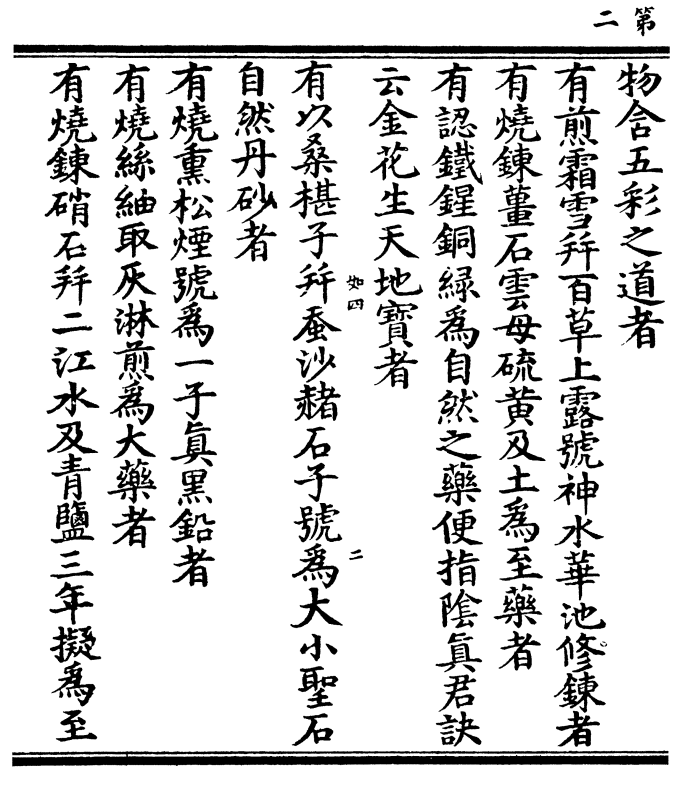 第二
物含五彩之道者
有煎霜雪并百草上露號神水華池修鍊者
有燒鍊薑石雲母硫黄及土為至藥者
有認鐵鍟銅緑為自然之藥便指陰眞君訣
云金花生天地寶者
如四
有以桑椹子并蚕沙赭石子號為大小聖石
二
自然丹砂者
有燒熏松煙號為一子眞黑鉛者
有燒絲紬取灰淋煎為大藥者
有燒鍊硝石并二江水及青鹽三年擬為至